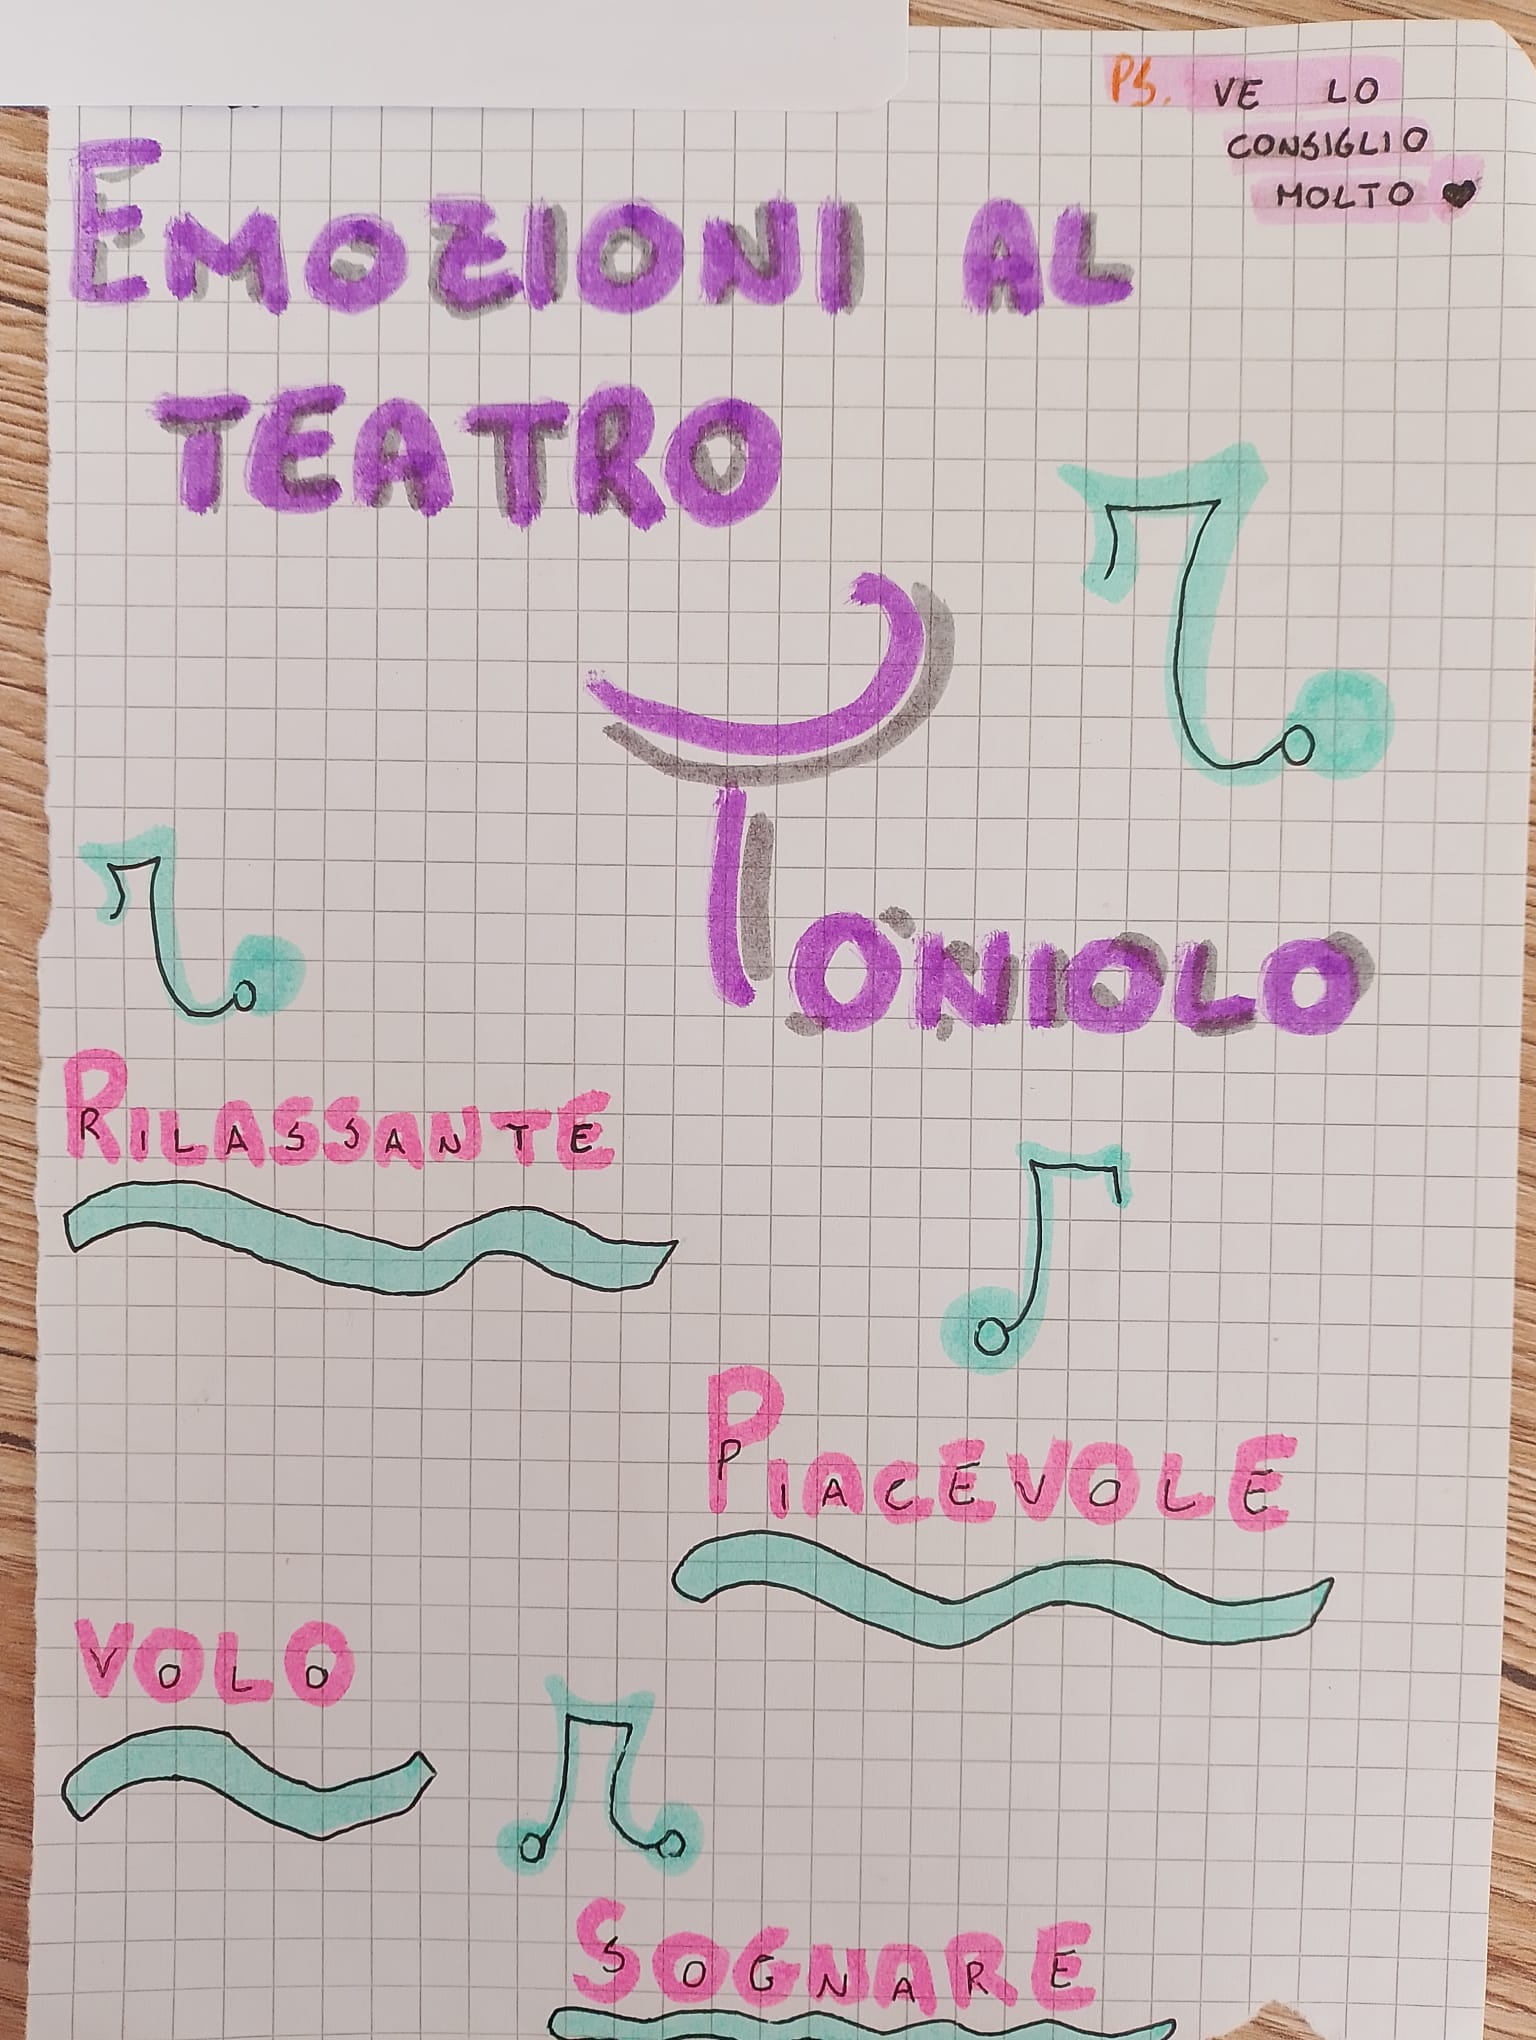 PS. VE LO
CONSIGLIO
MOLTO
EMOZIONI AL
TEATRO
TONIOLO
RILASSANTE
PIACEVOLE
VOLO
SOGNARE